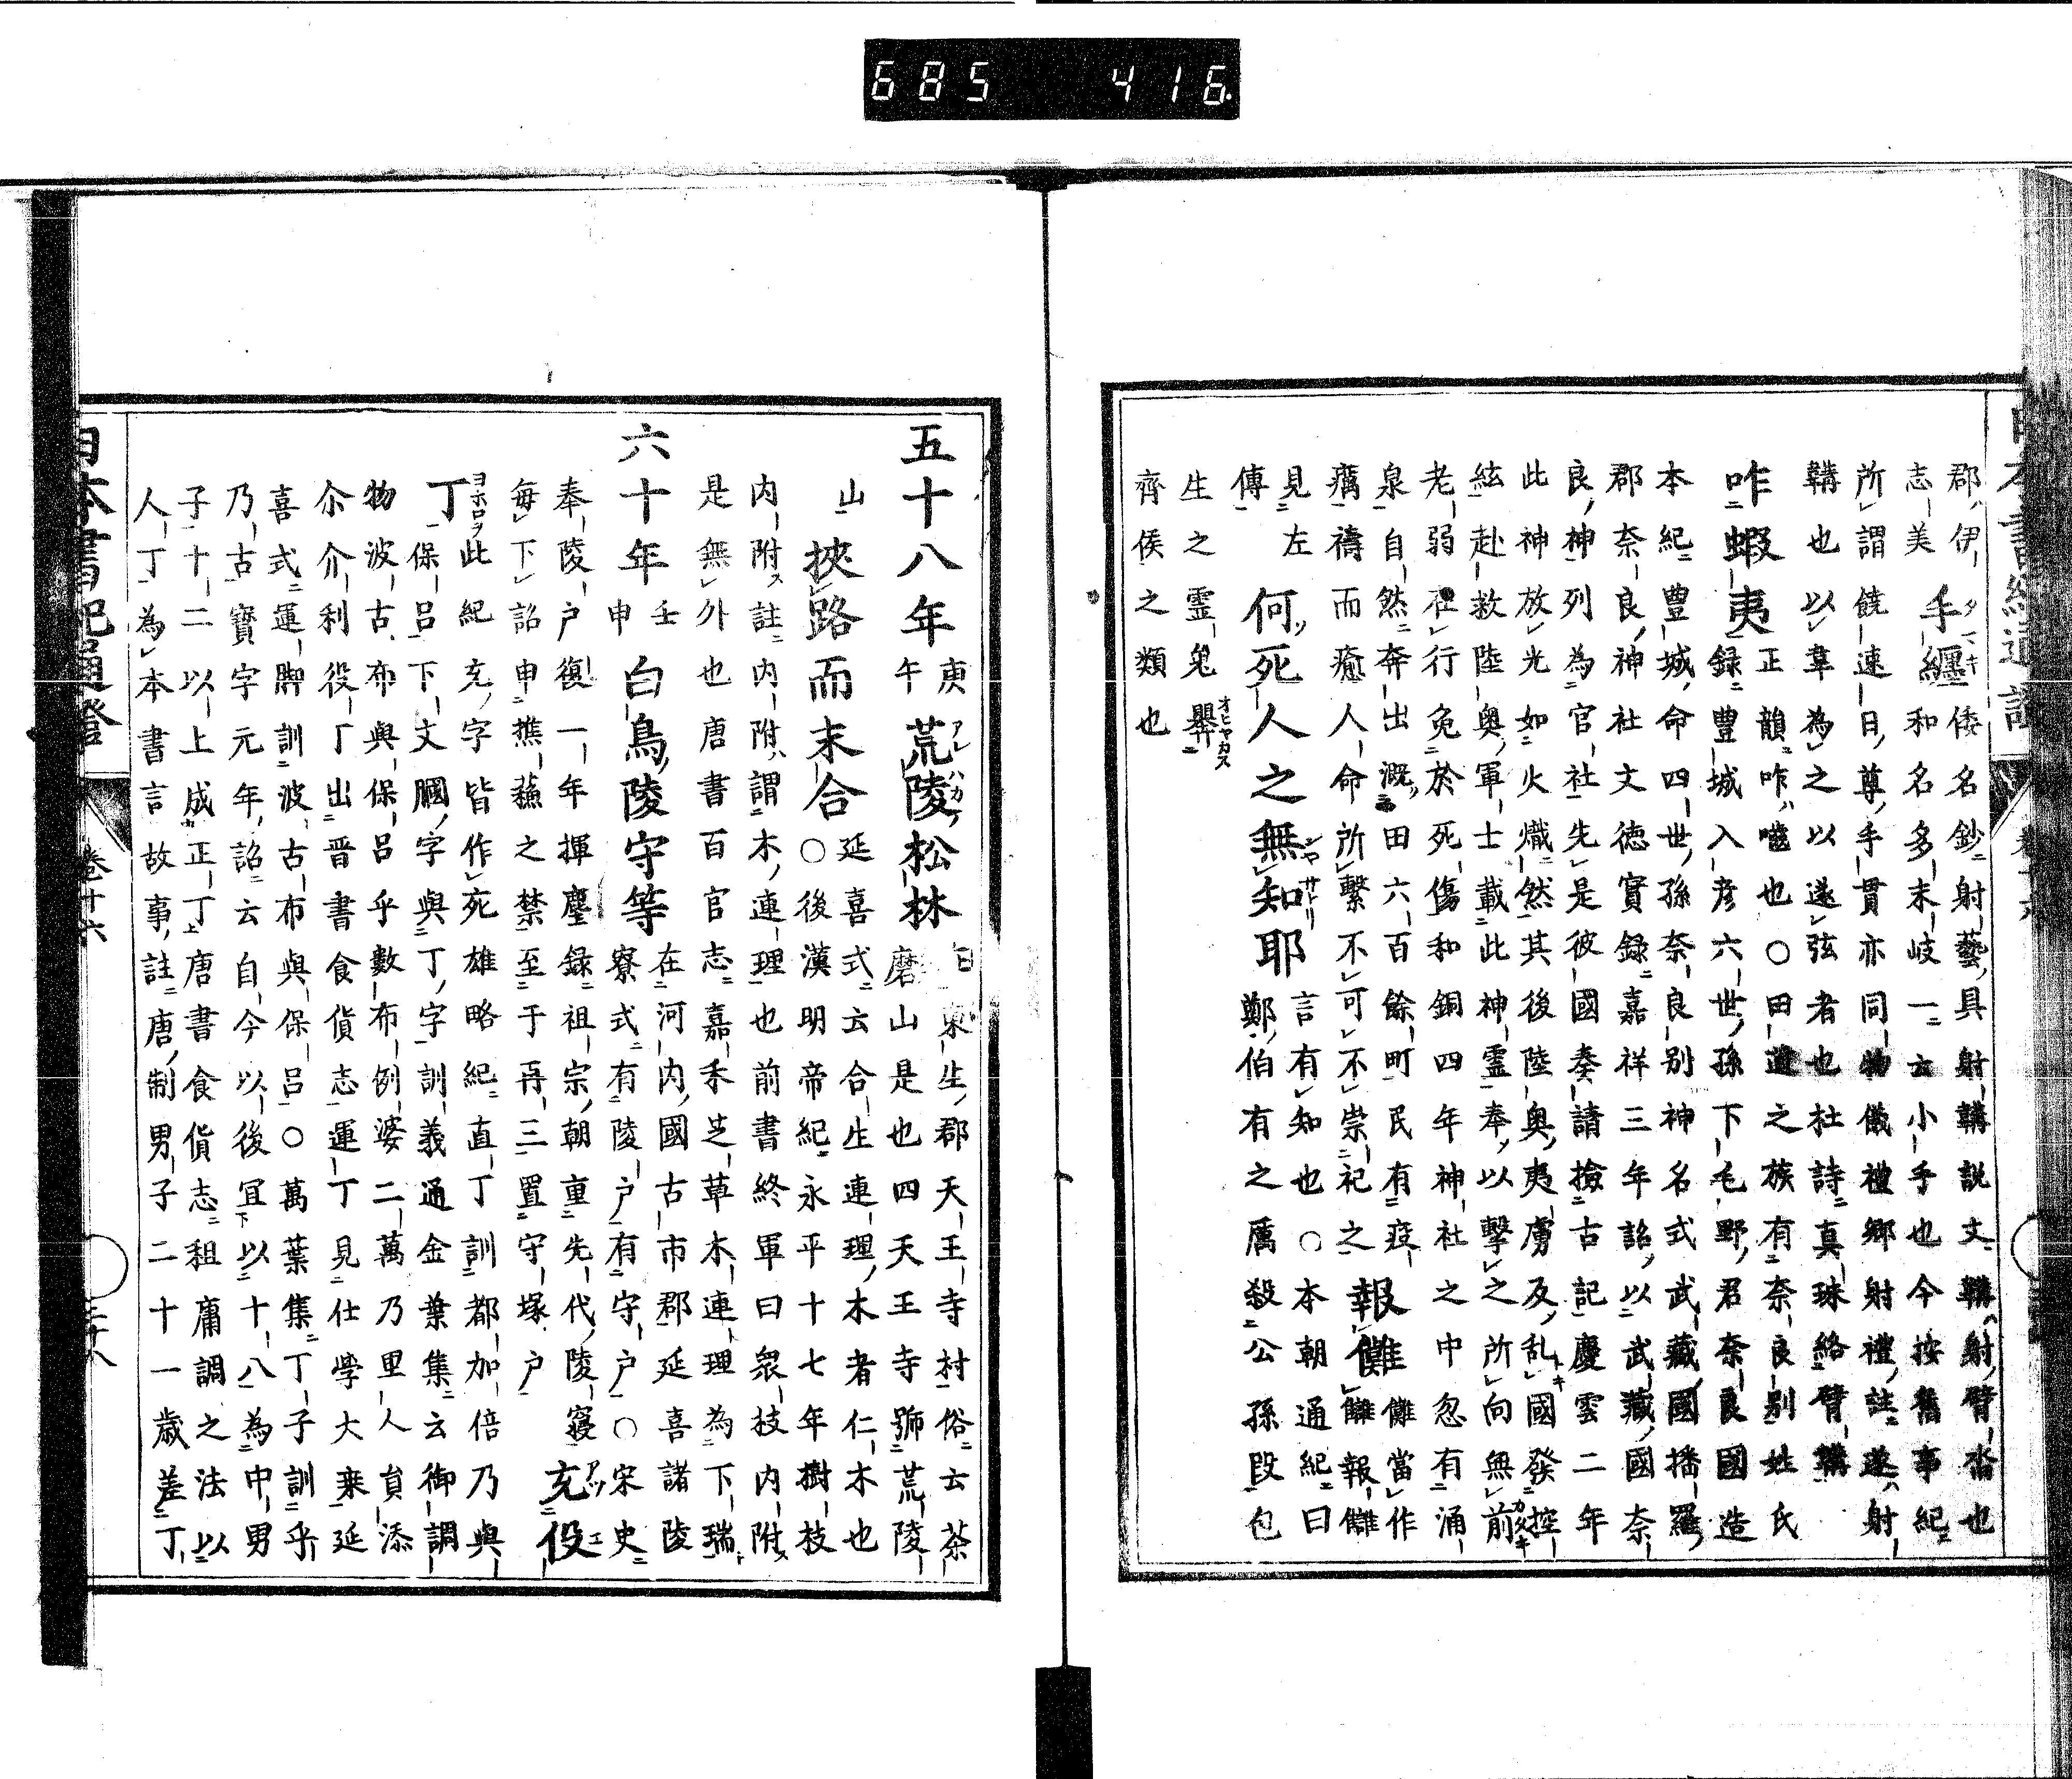 685 416
郡伊志美手纏倭名鈔射藝具射鞲説文鞲射臂沓也
和名多末岐一云小手也今按舊事紀
所謂饒速日尊手貫亦同物儀禮鄉射禮註遂射
鞲也以韋為之以遂弦者也杜詩真珠絡臂鞲
咋蝦夷正韻咋嚙也○田道之族有奈良别姓氏
録豊城入彦六世孫下毛野君奈良國造
本紀豊城命四世孫奈良别神名式武藏國播羅
郡奈良神社文徳實録嘉祥三年詔以武藏國奈
良神列為官社先是彼國奏請撿古記慶雲二年
此神放光如火熾然其後陸奥夷虜反乱國發控
絃赴救陸奥軍士載此神霊奉以擊之所向無前
老弱在行免於死傷和銅四年神社之中忽有涌
泉自然奔出溉田六百餘町民有疫
癘禱而癒人命所繫不可不崇祀之報讎讎當作
雔報雔
見左傳何死人之無知耶言有知也○本朝通紀曰
鄭伯有之厲殺公孫段包
生之霊鬼嬲
齊侯之類也
五十八年庚午荒陵松林曰東生郡天王寺村俗云茶
磨山是也四天王寺號荒陵
山挾路而末合○延喜式云合生連理木者仁木也
後漢明帝紀永平十七年樹枝
内附註内附謂木連理也前書終軍曰衆技内附
是無外也唐書百官志嘉禾芝草木連理為下瑞
六十年壬申白鳥陵守等在河内國古市郡延喜諸陵
寮式有陵户有守户○宋史
奉陵户復一年揮麈録祖宗朝重先代陵寝
每下詔申樵蘓之禁至于再三置守塚户充役
丁此紀充字皆作死雄略紀直丁訓都加倍乃與
保呂下文膕字與丁字訓義通金葉集云御調
物波古布與保呂乎數布例婆二萬乃里人員添
尒介利役丁出晋書食貨志運丁見仕學大乗延
喜式運脚訓波古布與保呂○萬葉集丁子訓乎
乃古寶字元年詔云自今以後宜以十八為中男
子十二以上成正丁唐書食貨志租庸調之法以
人丁為本書言故事註唐制男子二十一歳差丁
日本書紀通證 卷十六 三十八